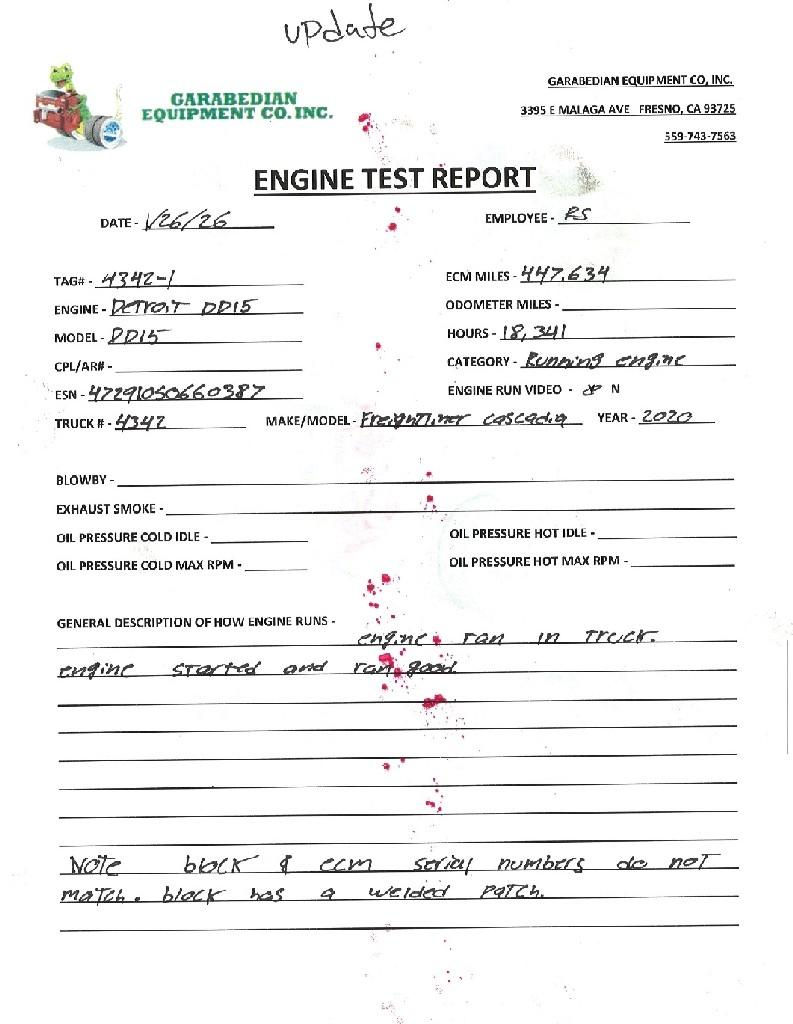 update
GARABEDIAN
EQUIPMENT CO. INC.
GARABEDIAN EQUIPMENT CO, INC.
3395 E MALAGA AVE FRESNO, CA 93725
559-743-7563
ENGINE TEST REPORT
DATE - 1/26/26 EMPLOYEE - RS
TAG# - 4342-1 ECM MILES - 447,634
ENGINE - DETROIT DD15 ODOMETER MILES -
MODEL - DD15 HOURS - 18,341
CPL/AR# - CATEGORY - Running engine
ESN - 472910S0660387 ENGINE RUN VIDEO - N
TRUCK # - 4342 MAKE/MODEL - Freightliner cascadia YEAR - 2020
BLOWBY -
EXHAUST SMOKE -
OIL PRESSURE COLD IDLE - OIL PRESSURE HOT IDLE -
OIL PRESSURE COLD MAX RPM - OIL PRESSURE HOT MAX RPM -
GENERAL DESCRIPTION OF HOW ENGINE RUNS -
engine ran in Truck.
engine started and ran good
NOTE block & ecm serial numbers do not
match. block has a welded patch.